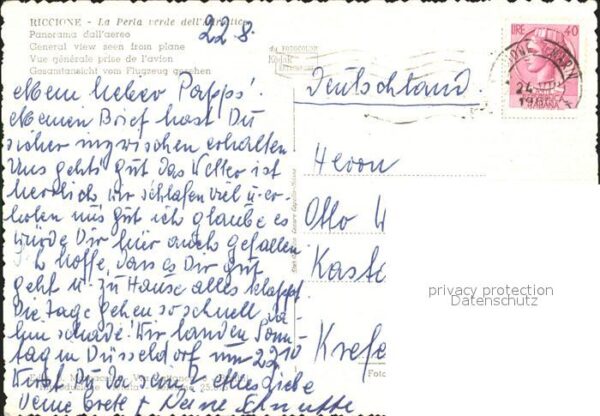 RICCIONE - La Perla verde dell'Adriatico
Panorama dall'aereo
General view seen from plane
Vue générale prise de l'avion
Gesamtansicht vom Flugzeug gesehen
22.8.
Mein lieber Papps!
Meinen Brief hast Du
sicher inzwischen erhalten
Uns gehts gut das Wetter ist
herrlich wir schlafen viel u. er-
holen uns gut ich glaube es
würde Dir hier auch gefallen
Ich hoffe, dass es Dir gut
geht u. zu Hause alles klappt.
Die Tage gehen so schnell da-
hin schade! Wir landen Sonn-
tag in Düsseldorf um 22 10
Wirst Du da sein? Alles liebe
Deine Grete + Deine
Kodak
LIRE 40
ITALIANA
24
Deutschland.
Herrn
Otto W
Kaste
Krefe
Fotc
privacy protection
Datenschutz